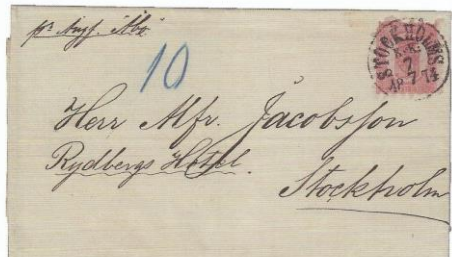 pr Angf. "Åbo"
10
STOCKHOLM
K.K.
7
AP 7 74
Herr Alfr. Jacobsson
Rydbergs Hotel.
Stockholm